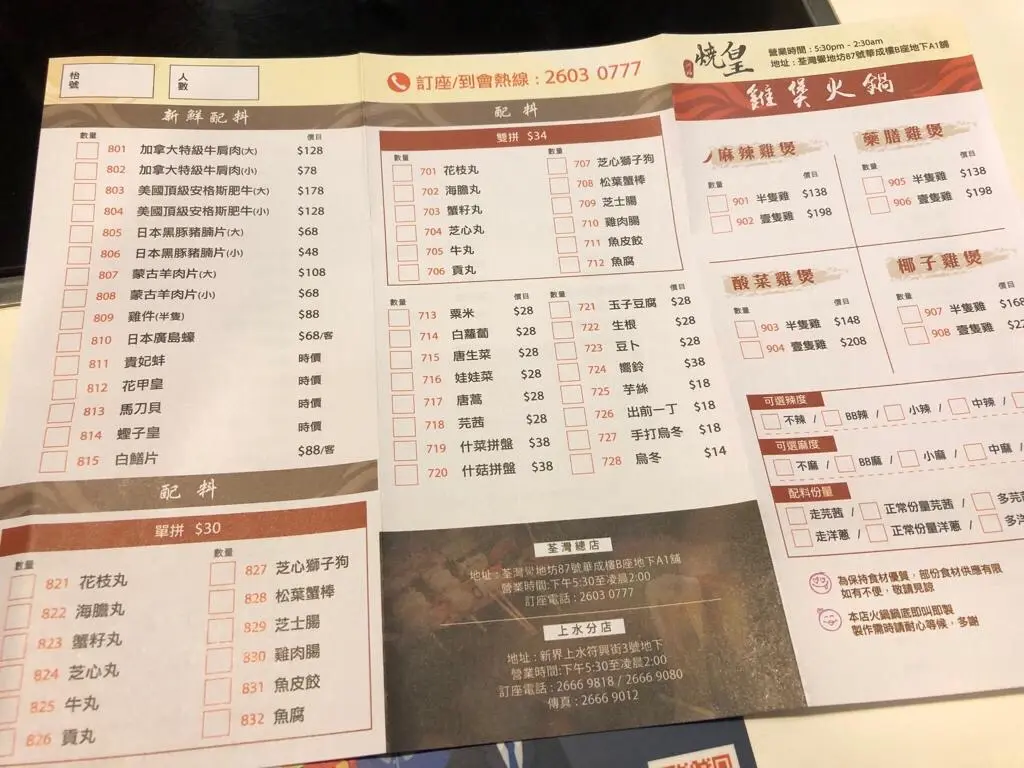 枱號
人數
訂座/到會熱線：2603 0777
燒皇
營業時間：5:30pm - 2:30am
地址：荃灣鱟地坊87號華成樓B座地下A1舖
雞煲火鍋
新鮮配料
數量 價目
801 加拿大特級牛肩肉(大) $128
802 加拿大特級牛肩肉(小) $78
803 美國頂級安格斯肥牛(大) $178
804 美國頂級安格斯肥牛(小) $128
805 日本黑豚豬腩片(大) $68
806 日本黑豚豬腩片(小) $48
807 蒙古羊肉片(大) $108
808 蒙古羊肉片(小) $68
809 雞件(半隻) $88
810 日本廣島蠔 $68/客
811 貴妃蚌 時價
812 花甲皇 時價
813 馬刀貝 時價
814 蟶子皇 時價
815 白鱔片 $88/客
配料
單拼 $30
數量 數量
821 花枝丸
822 海膽丸
823 蟹籽丸
824 芝心丸
825 牛丸
826 貢丸
827 芝心獅子狗
828 松葉蟹棒
829 芝士腸
830 雞肉腸
831 魚皮餃
832 魚腐
配料
雙拼 $34
數量 數量
701 花枝丸
702 海膽丸
703 蟹籽丸
704 芝心丸
705 牛丸
706 貢丸
707 芝心獅子狗
708 松葉蟹棒
709 芝士腸
710 雞肉腸
711 魚皮餃
712 魚腐
數量 價目 數量 價目
713 粟米 $28
714 白蘿蔔 $28
715 唐生菜 $28
716 娃娃菜 $28
717 唐蒿 $28
718 芫茜 $28
719 什菜拼盤 $38
720 什菇拼盤 $38
721 玉子豆腐 $28
722 生根 $28
723 豆卜 $28
724 嚮鈴 $38
725 芋絲 $18
726 出前一丁 $18
727 手打烏冬 $18
728 烏冬 $14
荃灣總店
地址：荃灣鱟地坊87號華成樓B座地下A1舖
營業時間:下午5:30至凌晨2:00
訂座電話：2603 0777
上水分店
地址：新界上水符興街3號地下
營業時間:下午5:30至凌晨2:00
訂座電話：2666 9818 / 2666 9080
傳真：2666 9012
麻辣雞煲
數量 價目
901 半隻雞 $138
902 壹隻雞 $198
藥膳雞煲
數量 價目
905 半隻雞 $138
906 壹隻雞 $198
酸菜雞煲
數量 價目
903 半隻雞 $148
904 壹隻雞 $208
椰子雞煲
數量 價目
907 半隻雞 $168
908 壹隻雞
可選辣度
不辣 / BB辣 / 小辣 / 中辣 /
可選麻度
不麻 / BB麻 / 小麻 / 中麻 /
配料份量
走芫茜 / 正常份量芫茜 / 多芫
走洋蔥 / 正常份量洋蔥 / 多洋
為保持食材優質，部份食材供應有限
如有不便，敬請見諒
本店火鍋鍋底即叫即製
製作需時請耐心等候，多謝